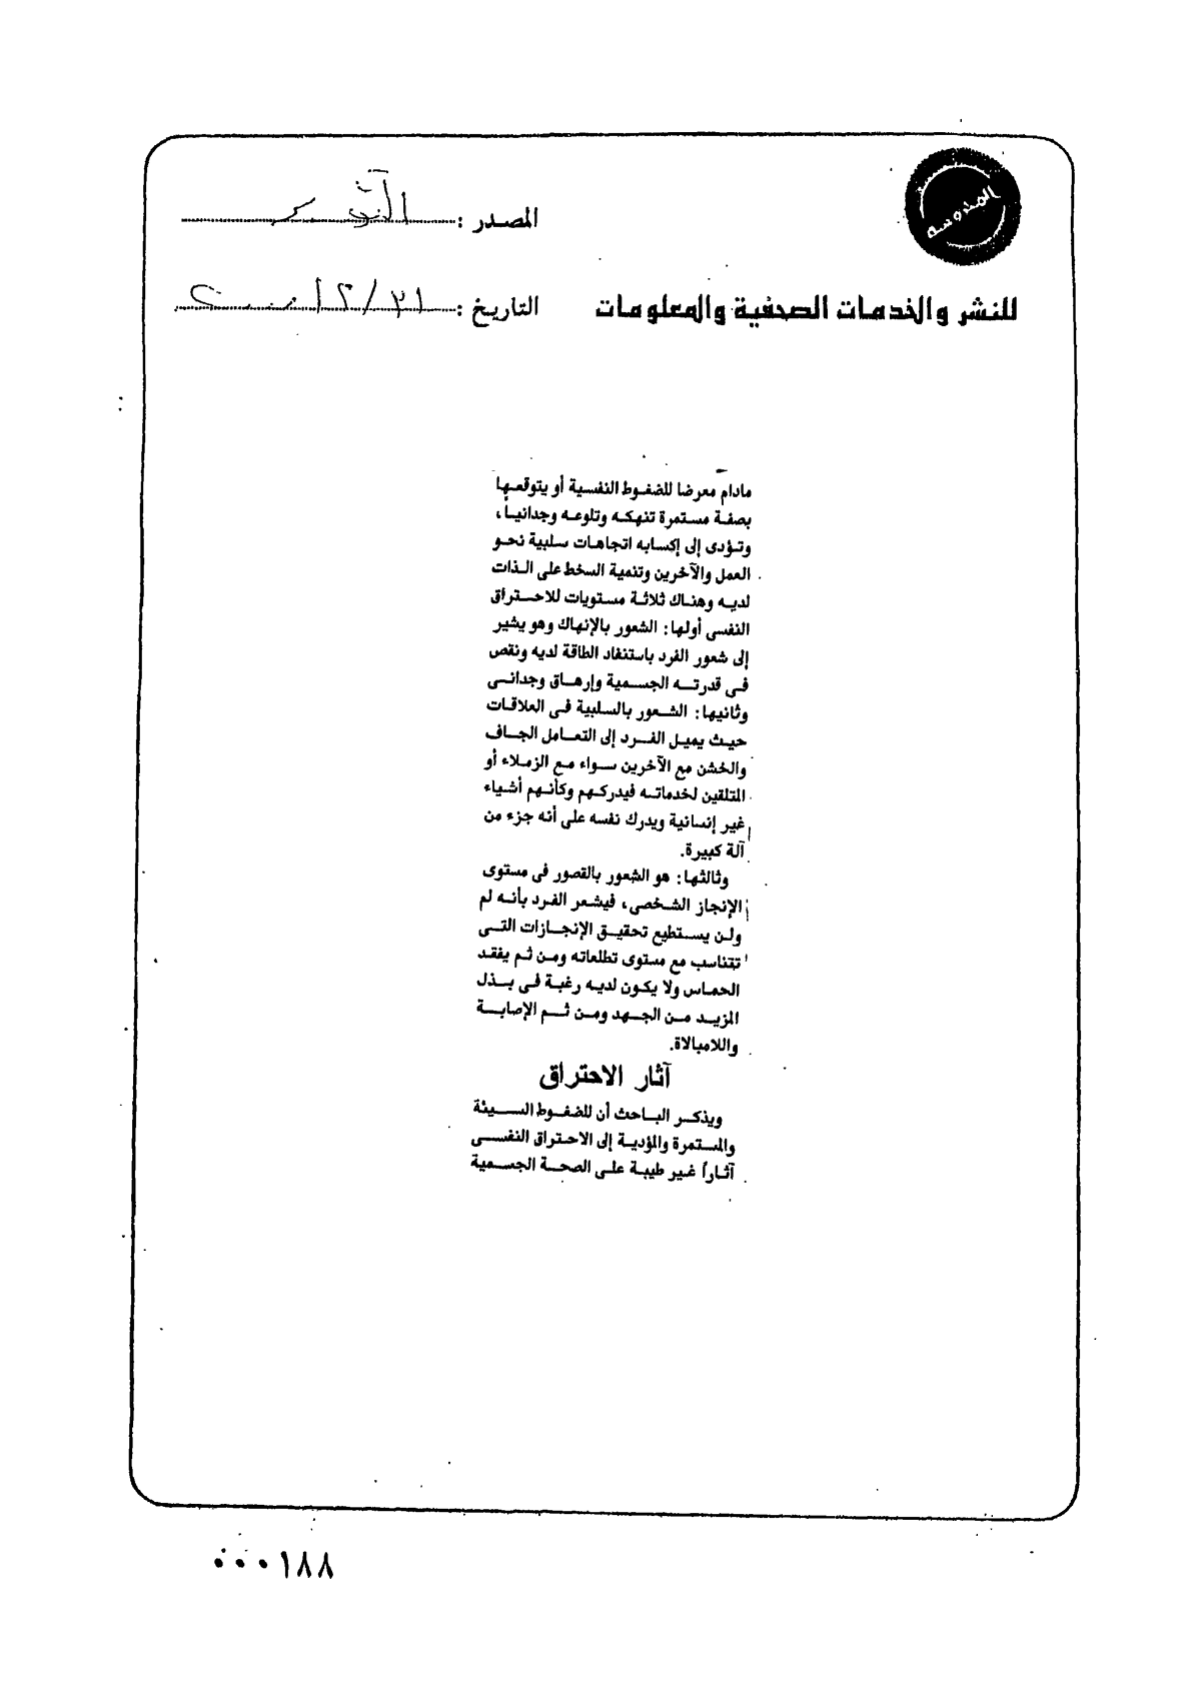 المحروسة
المصدر :
للنشر والخدمات الصحفية والمعلومات
التاريخ :
مادام معرضا للضغوط النفسية أو يتوقعها
بصفة مستمرة تنهكه وتلوعه وجدانياً،
وتؤدى إلى إكسابه اتجاهات سلبية نحو
العمل والآخرين وتنمية السخط على الذات
لديه وهناك ثلاثة مستويات للاحتراق
النفسى أولها: الشعور بالإنهاك وهو يشير
إلى شعور الفرد باستنفاد الطاقة لديه ونقص
فى قدرته الجسمية وإرهاق وجدانى
وثانيها: الشعور بالسلبية فى العلاقات
حيث يميل الفرد إلى التعامل الجاف
والخشن مع الآخرين سواء مع الزملاء أو
المتلقين لخدماته فيدركهم وكأنهم أشياء
غير إنسانية ويدرك نفسه على أنه جزء من
آلة كبيرة.
وثالثها: هو الشعور بالقصور فى مستوى
الإنجاز الشخصى، فيشعر الفرد بأنه لم
ولن يستطيع تحقيق الإنجازات التى
تتناسب مع مستوى تطلعاته ومن ثم يفقد
الحماس ولا يكون لديه رغبة فى بذل
المزيد من الجهد ومن ثم الإصابة
واللامبالاة.
آثار الاحتراق
ويذكر الباحث أن للضغوط السيئة
والمستمرة والمؤدية إلى الاحتراق النفسى
آثاراً غير طيبة على الصحة الجسمية
٠٠٠١٨٨